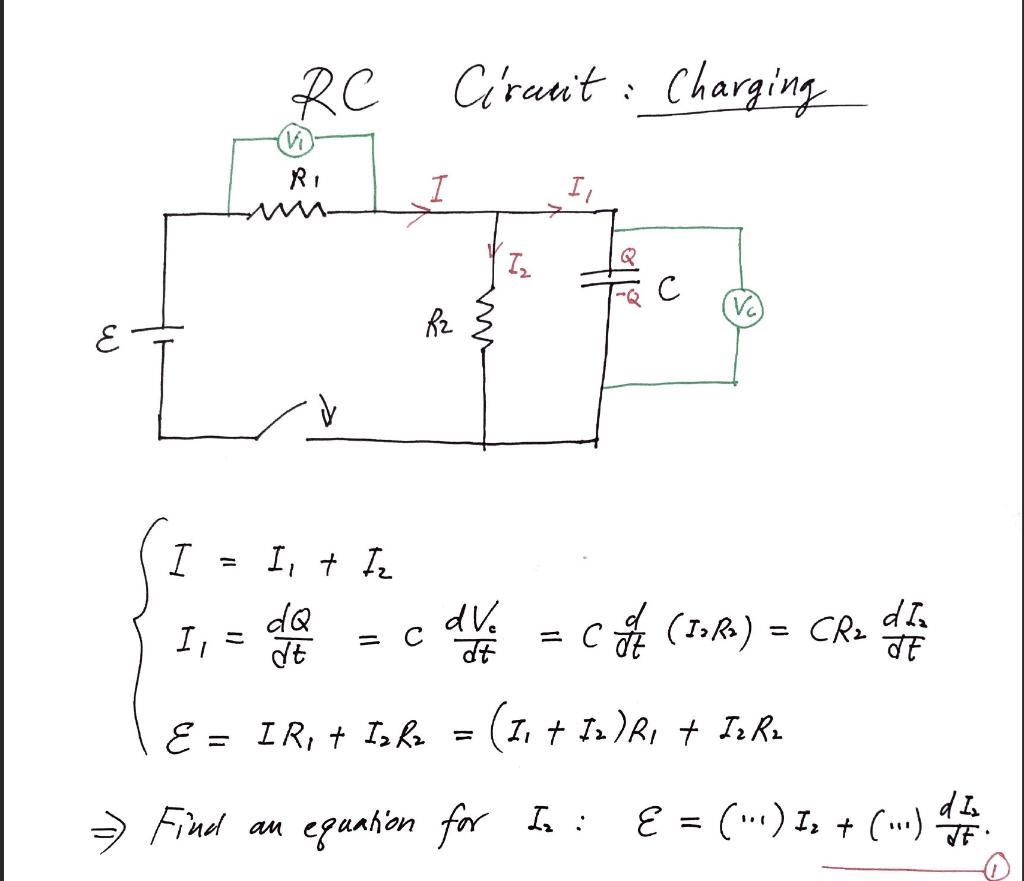 RC Circuit : Charging
V₁
R₁
I
I₁
I₂
Q
-Q
C
Vc
R₂
ℰ
I = I₁ + I₂
I₁ = dQ/dt = C dVc/dt = C d/dt (I₂R₂) = CR₂ dI₂/dt
ℰ = IR₁ + I₂R₂ = (I₁ + I₂)R₁ + I₂R₂
⇒ Find an equation for I₂ : ℰ = (...) I₂ + (...) dI₂/dt.
1